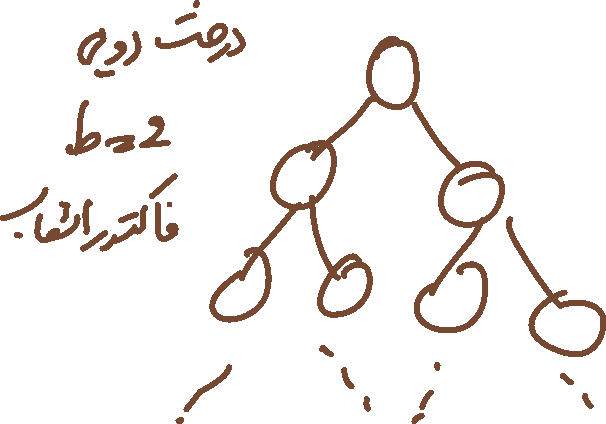 درخت دودویی
b=2
فاکتور انشعاب